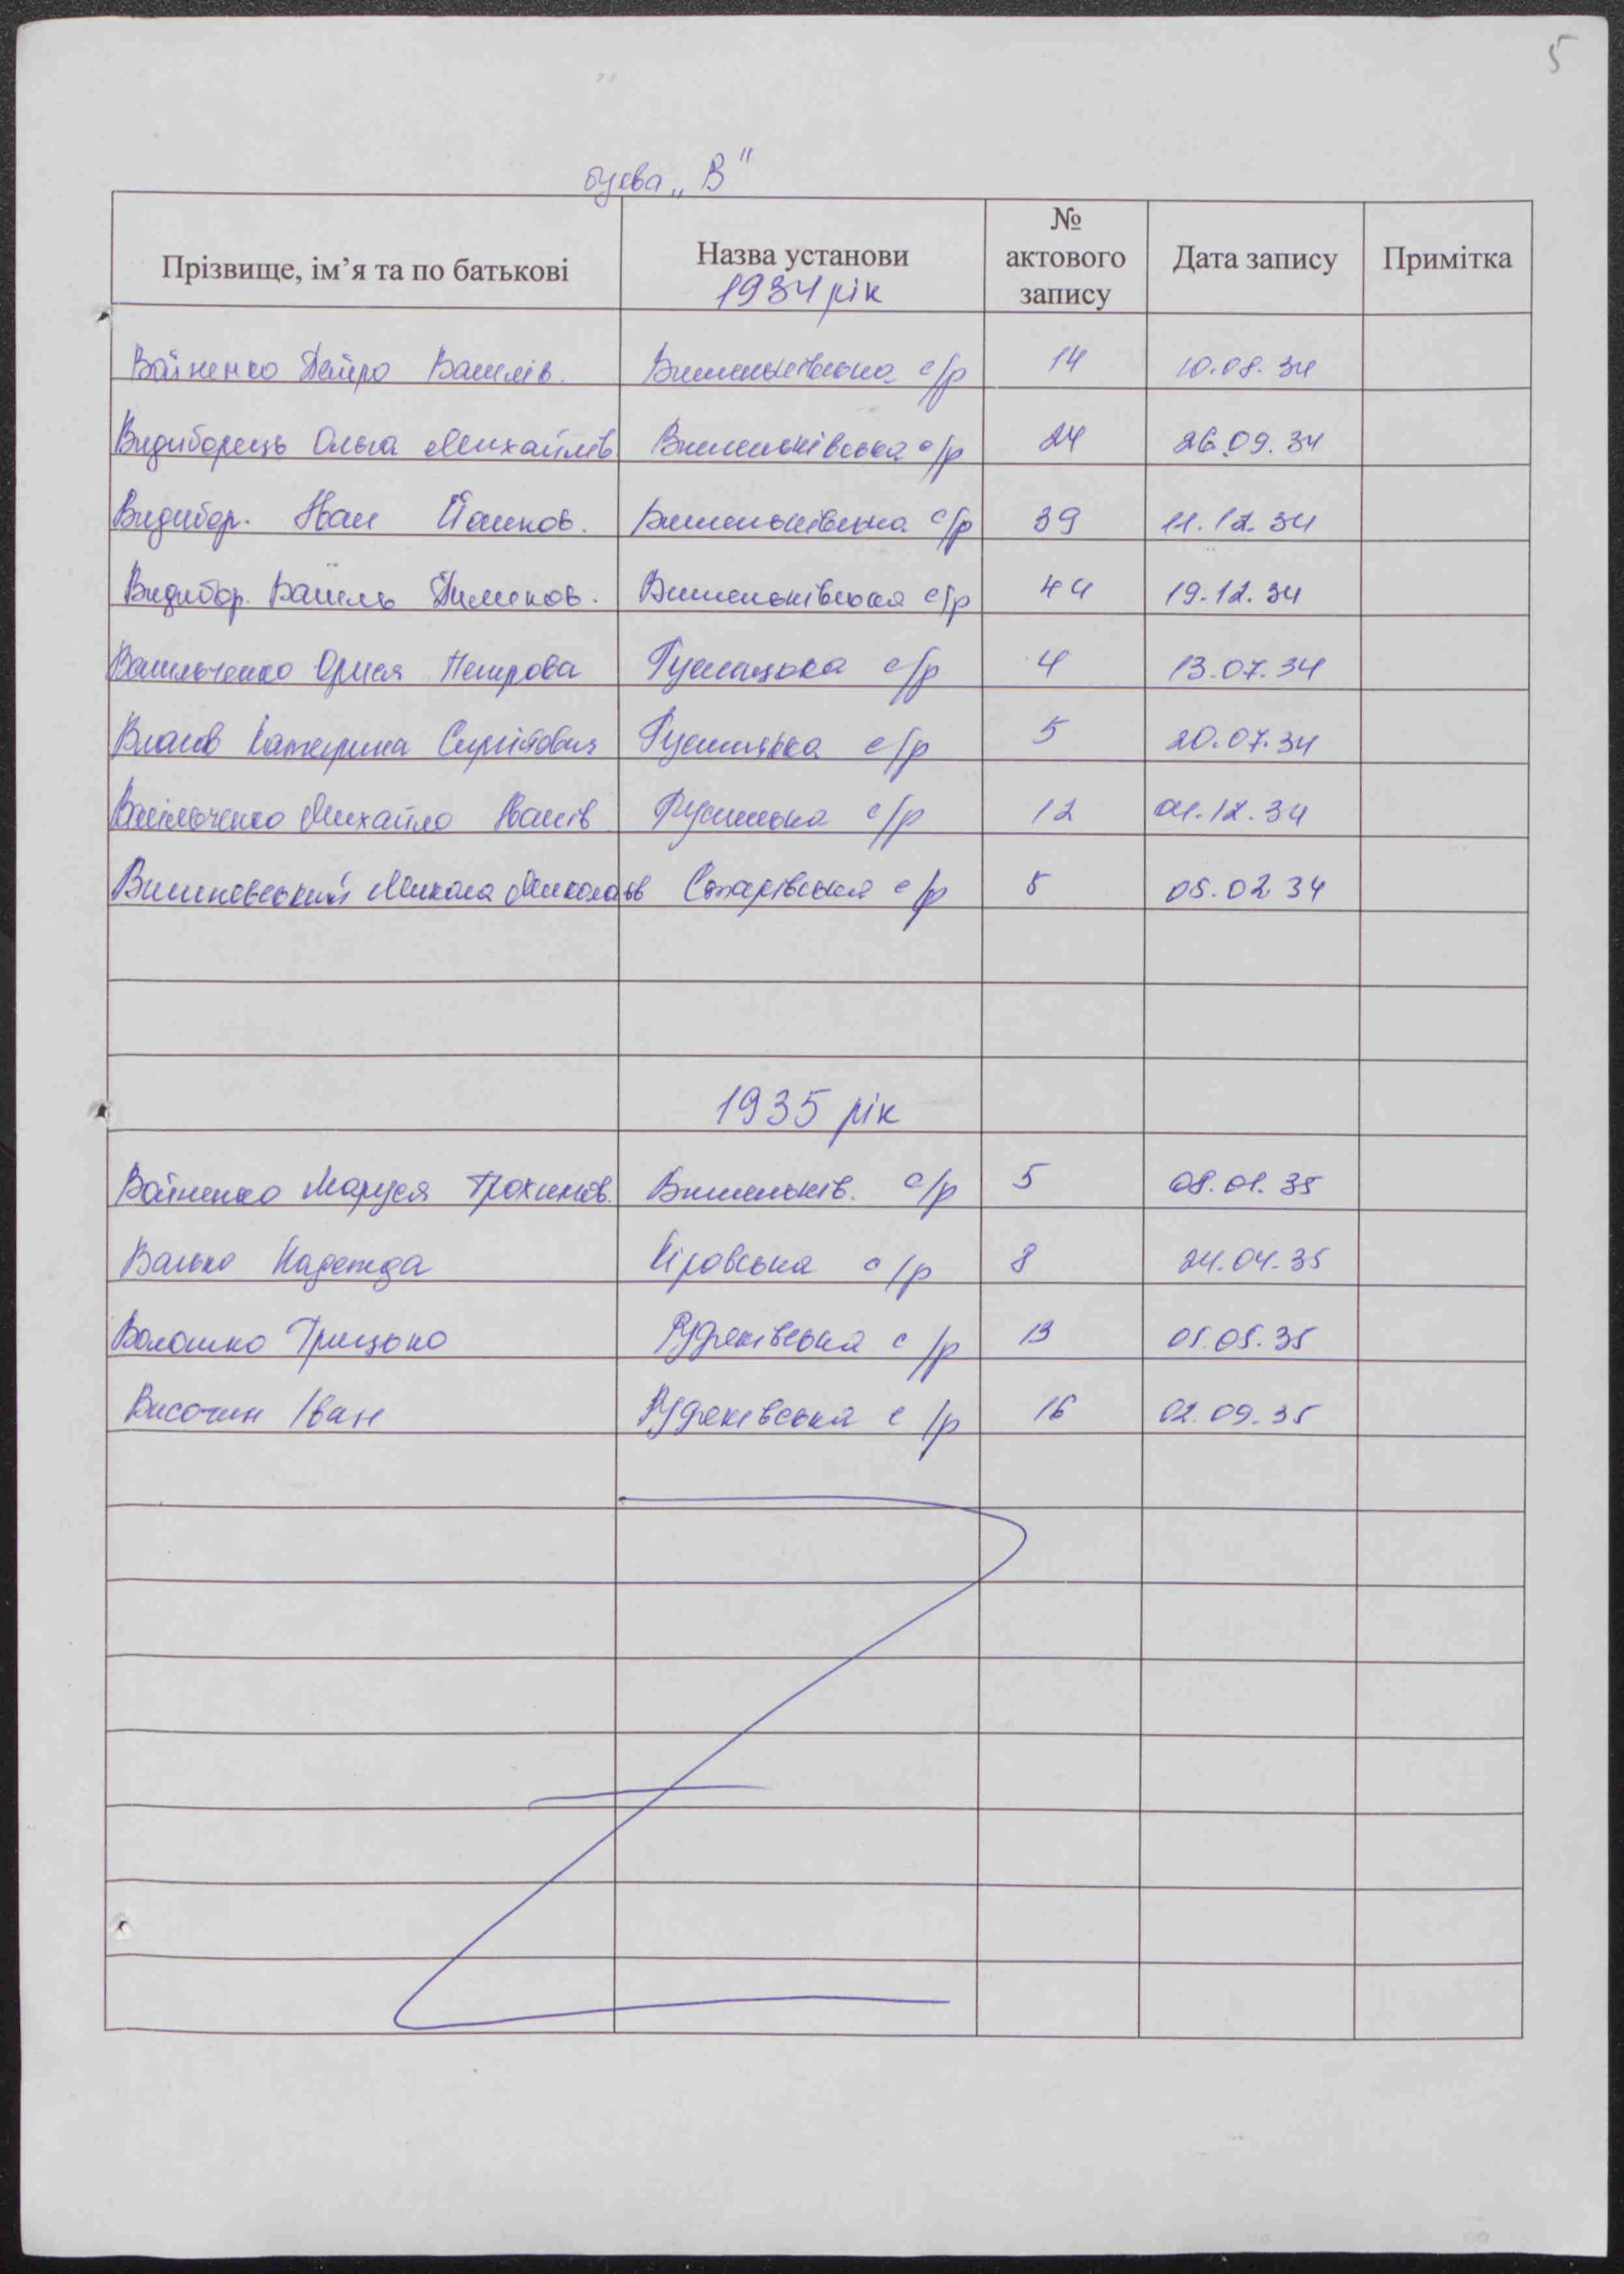 5
буква „В"
Прізвище, ім'я та по батькові Назва установи 1934 рік № актового запису Дата запису Примітка
Войненко Петро Василів. Вишеньківська с/р 14 10.08.34
Видиборець Ольга Михайлів. Вишеньківська с/р 24 26.09.34
Видибор. Іван Йосипов. Вишеньківська с/р 39 11.12.34
Видибор. Василь Пилипов. Вишеньківська с/р 44 19.12.34
Васильченко Орися Петрова с/р 4 13.07.34
Власів Катерина с/р 5 20.07.34
Васільченко Михайло Іванів с/р 12 01.12.34
Вишневський Микола Миколаїв с/р 5 05.02.34
1935 рік
Войненко Маруся Трохимів. Вишеньків. с/р 5 08.01.35
Валько Надежда Кіровська с/р 8 24.04.35
Волошко Грицько Рудяківська с/р 13 05.05.35
Височин Іван Рудяківська с/р 16 02.09.35